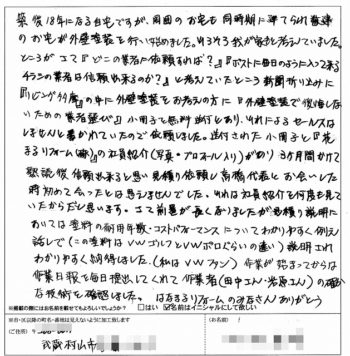 築後18年になる自宅ですが、周囲のお宅も同時期に建てられ数軒
のお宅が外壁塗装を行い始めました。そろそろ我が家もと考えていました。
ところが さて『どこの業者に依頼すれば？』『ポストに毎日のように入って来る
チラシの業者は信頼出来るのか？』と考えていたところ新聞折り込みに
『リビング多摩』の中に外壁塗装をお考えの方に『外壁塗装で後悔しな
いための業者選び』小冊子と無料進呈とあり、それによるセールスは
しませんと書かれていたので依頼しました。送付された小冊子と『花
まるリフォーム(株)』の社員紹介(写真・プロフィール入り)があり 3ケ月間かけて
熟読後 信頼出来ると思い見積り依頼し高橋代表とお会いした
時初めて会ったとは思えませんでした。それは社員紹介を何度も見て
いたからだと思います。さて前置が長くなりましたが見積り説明に
おいては塗料の耐用年数・コストパフォーマンスについてわかりやすく例え
話しで(この塗料はVWゴルフとVWポロぐらいの違い)説明され
わかりやすく納得しました。(私はVWファン) 作業が始まってからは
作業日報を毎日提出してくれて作業者(田中さん・岩原さん)の確か
な技術を確認しました。はなまるリフォームのみなさんありがとう
※掲載の際にはお名前を載せてもよろしいでしょうか？ □はい ☑名前はイニシャルにして欲しい
※市・区以降の町名・番地は見えないように加工致します
(ご住所) 〒
(お名前)
武蔵村山市